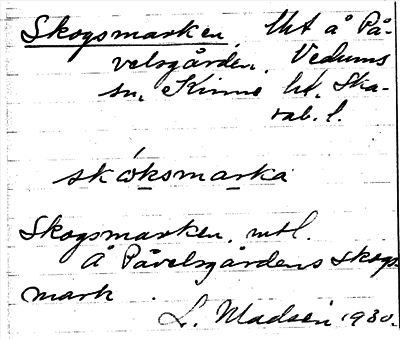 Skogsmarken Uti å På-
velsgården, Vedums
sn, Kinne hd, Ska-
rab. l.
skóksmarka
Skogsmarken. mtl.
å Påvelsgårdens skogs
mark.
L. Madsén 1930.